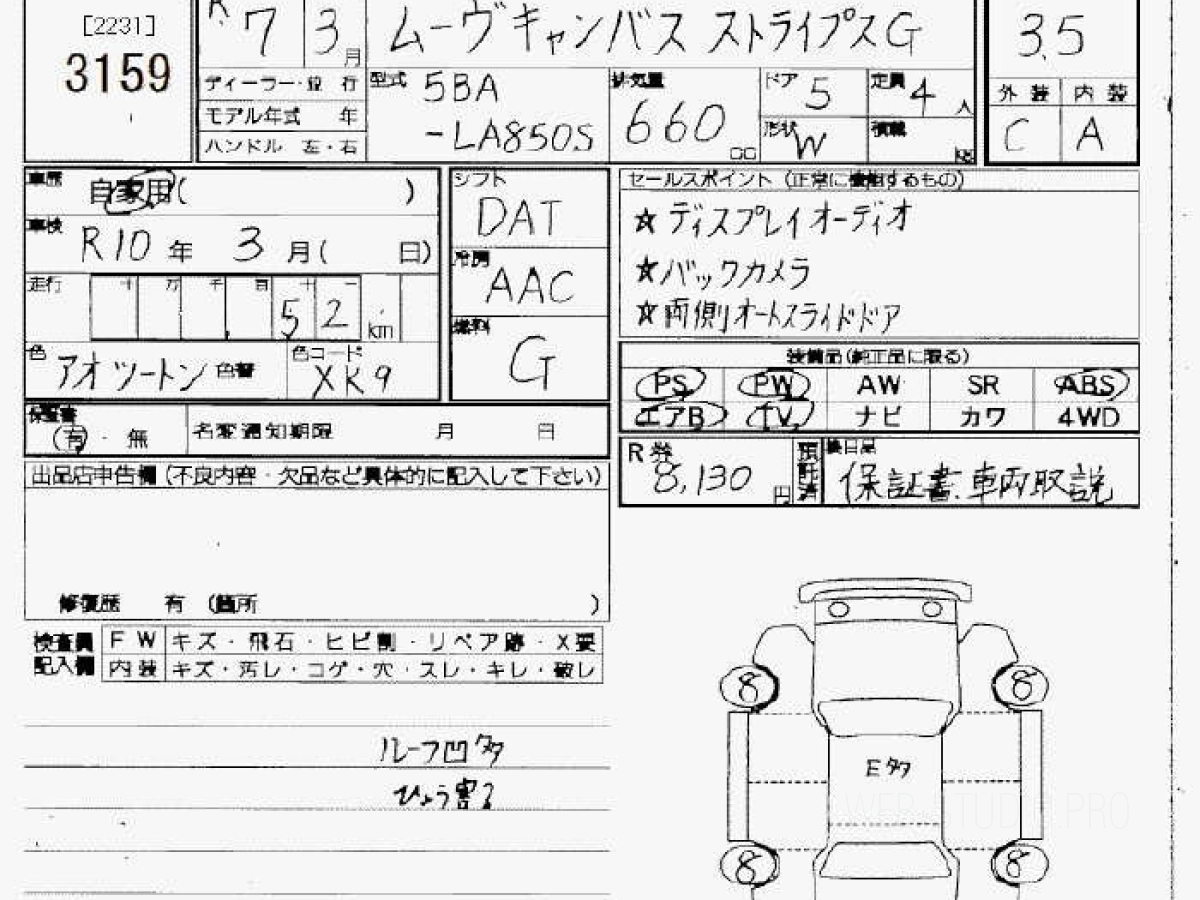 [2231]
3159
R 7 3月
ムーヴキャンバス ストライプスG
3.5
ディーラー・並 行
モデル年式 年
ハンドル 左・右
型式 5BA
-LA850S
排気量 660 cc
ドア 5
定員 4 人
形状 W
積載 kg
外 装 内 装
C A
車歴 自家用( )
車検 R10 年 3 月( 日)
走行 十 万 千 百 十 一
5 2 km
色 アオツートン 色替
色コード XK9
シフト DAT
冷房 AAC
燃料 G
セールスポイント (正常に機能するもの)
☆ ディスプレイオーディオ
☆バックカメラ
☆両側オートスライドドア
装備品(純正品に限る)
PS PW AW SR ABS
エアB TV ナビ カワ 4WD
保証書 有 · 無
名変通知期限 月 日
R発 8,130 円
預託済
後日品 保証書.車両取説
出品店申告欄(不良内容・欠品など具体的に記入して下さい)
修復歴 有 (箇所 )
検査員記入欄
F W キズ・飛石・ヒビ割・リペア跡・X要
内装 キズ・汚レ・コゲ・穴・スレ・キレ・破レ
ルーフ凹多
ひょう害?
8 8
E多
8 8